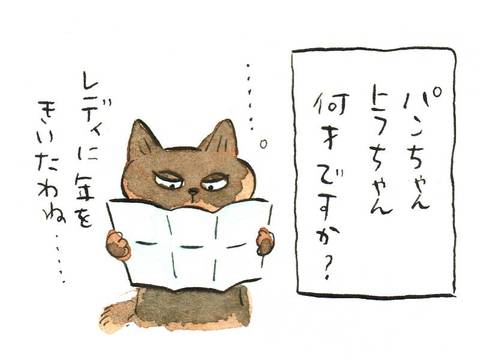 パンちゃん
トラちゃん
何才ですか?
………
レディに年を
きいたわね……